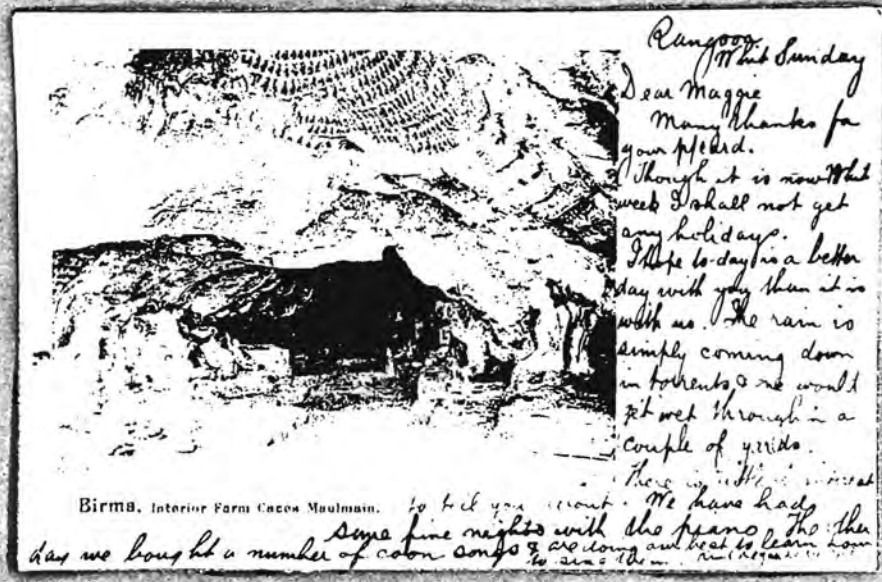 Rangoon
Whit Sunday
Dear Maggie
Many thanks for
your p/card.
Though it is now Whit
week I shall not get
any holidays.
I hope to-day is a better
day with you than it is
with us. The rain is
simply coming down
in torrents & one would
get wet through in a
couple of yards.
There is
to tell you about. We have had
some fine nights with the piano. The other
day we bought a number of coon songs & are doing our best to learn how
to sing them.
Birma, Interior Farm Caces Maulmain.